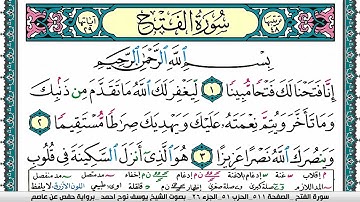 سُورَةُ الفَتْحِ
بِسْمِ ٱللَّهِ ٱلرَّحْمَٰنِ ٱلرَّحِيمِ
إِنَّا فَتَحْنَا لَكَ فَتْحًا مُّبِينًا ١ لِّيَغْفِرَ لَكَ ٱللَّهُ مَا تَقَدَّمَ مِن ذَنۢبِكَ
وَمَا تَأَخَّرَ وَيُتِمَّ نِعْمَتَهُۥ عَلَيْكَ وَيَهْدِيَكَ صِرَٰطًا مُّسْتَقِيمًا ٢
وَيَنصُرَكَ ٱللَّهُ نَصْرًا عَزِيزًا ٣ هُوَ ٱلَّذِىٓ أَنزَلَ ٱلسَّكِينَةَ فِى قُلُوبِ
سورة الفتح الصفحة ٥١١ الحزب ٥١ الجزء ٢٦ بصوت الشيخ يوسف نوح احمد برواية حفص عن عاصم